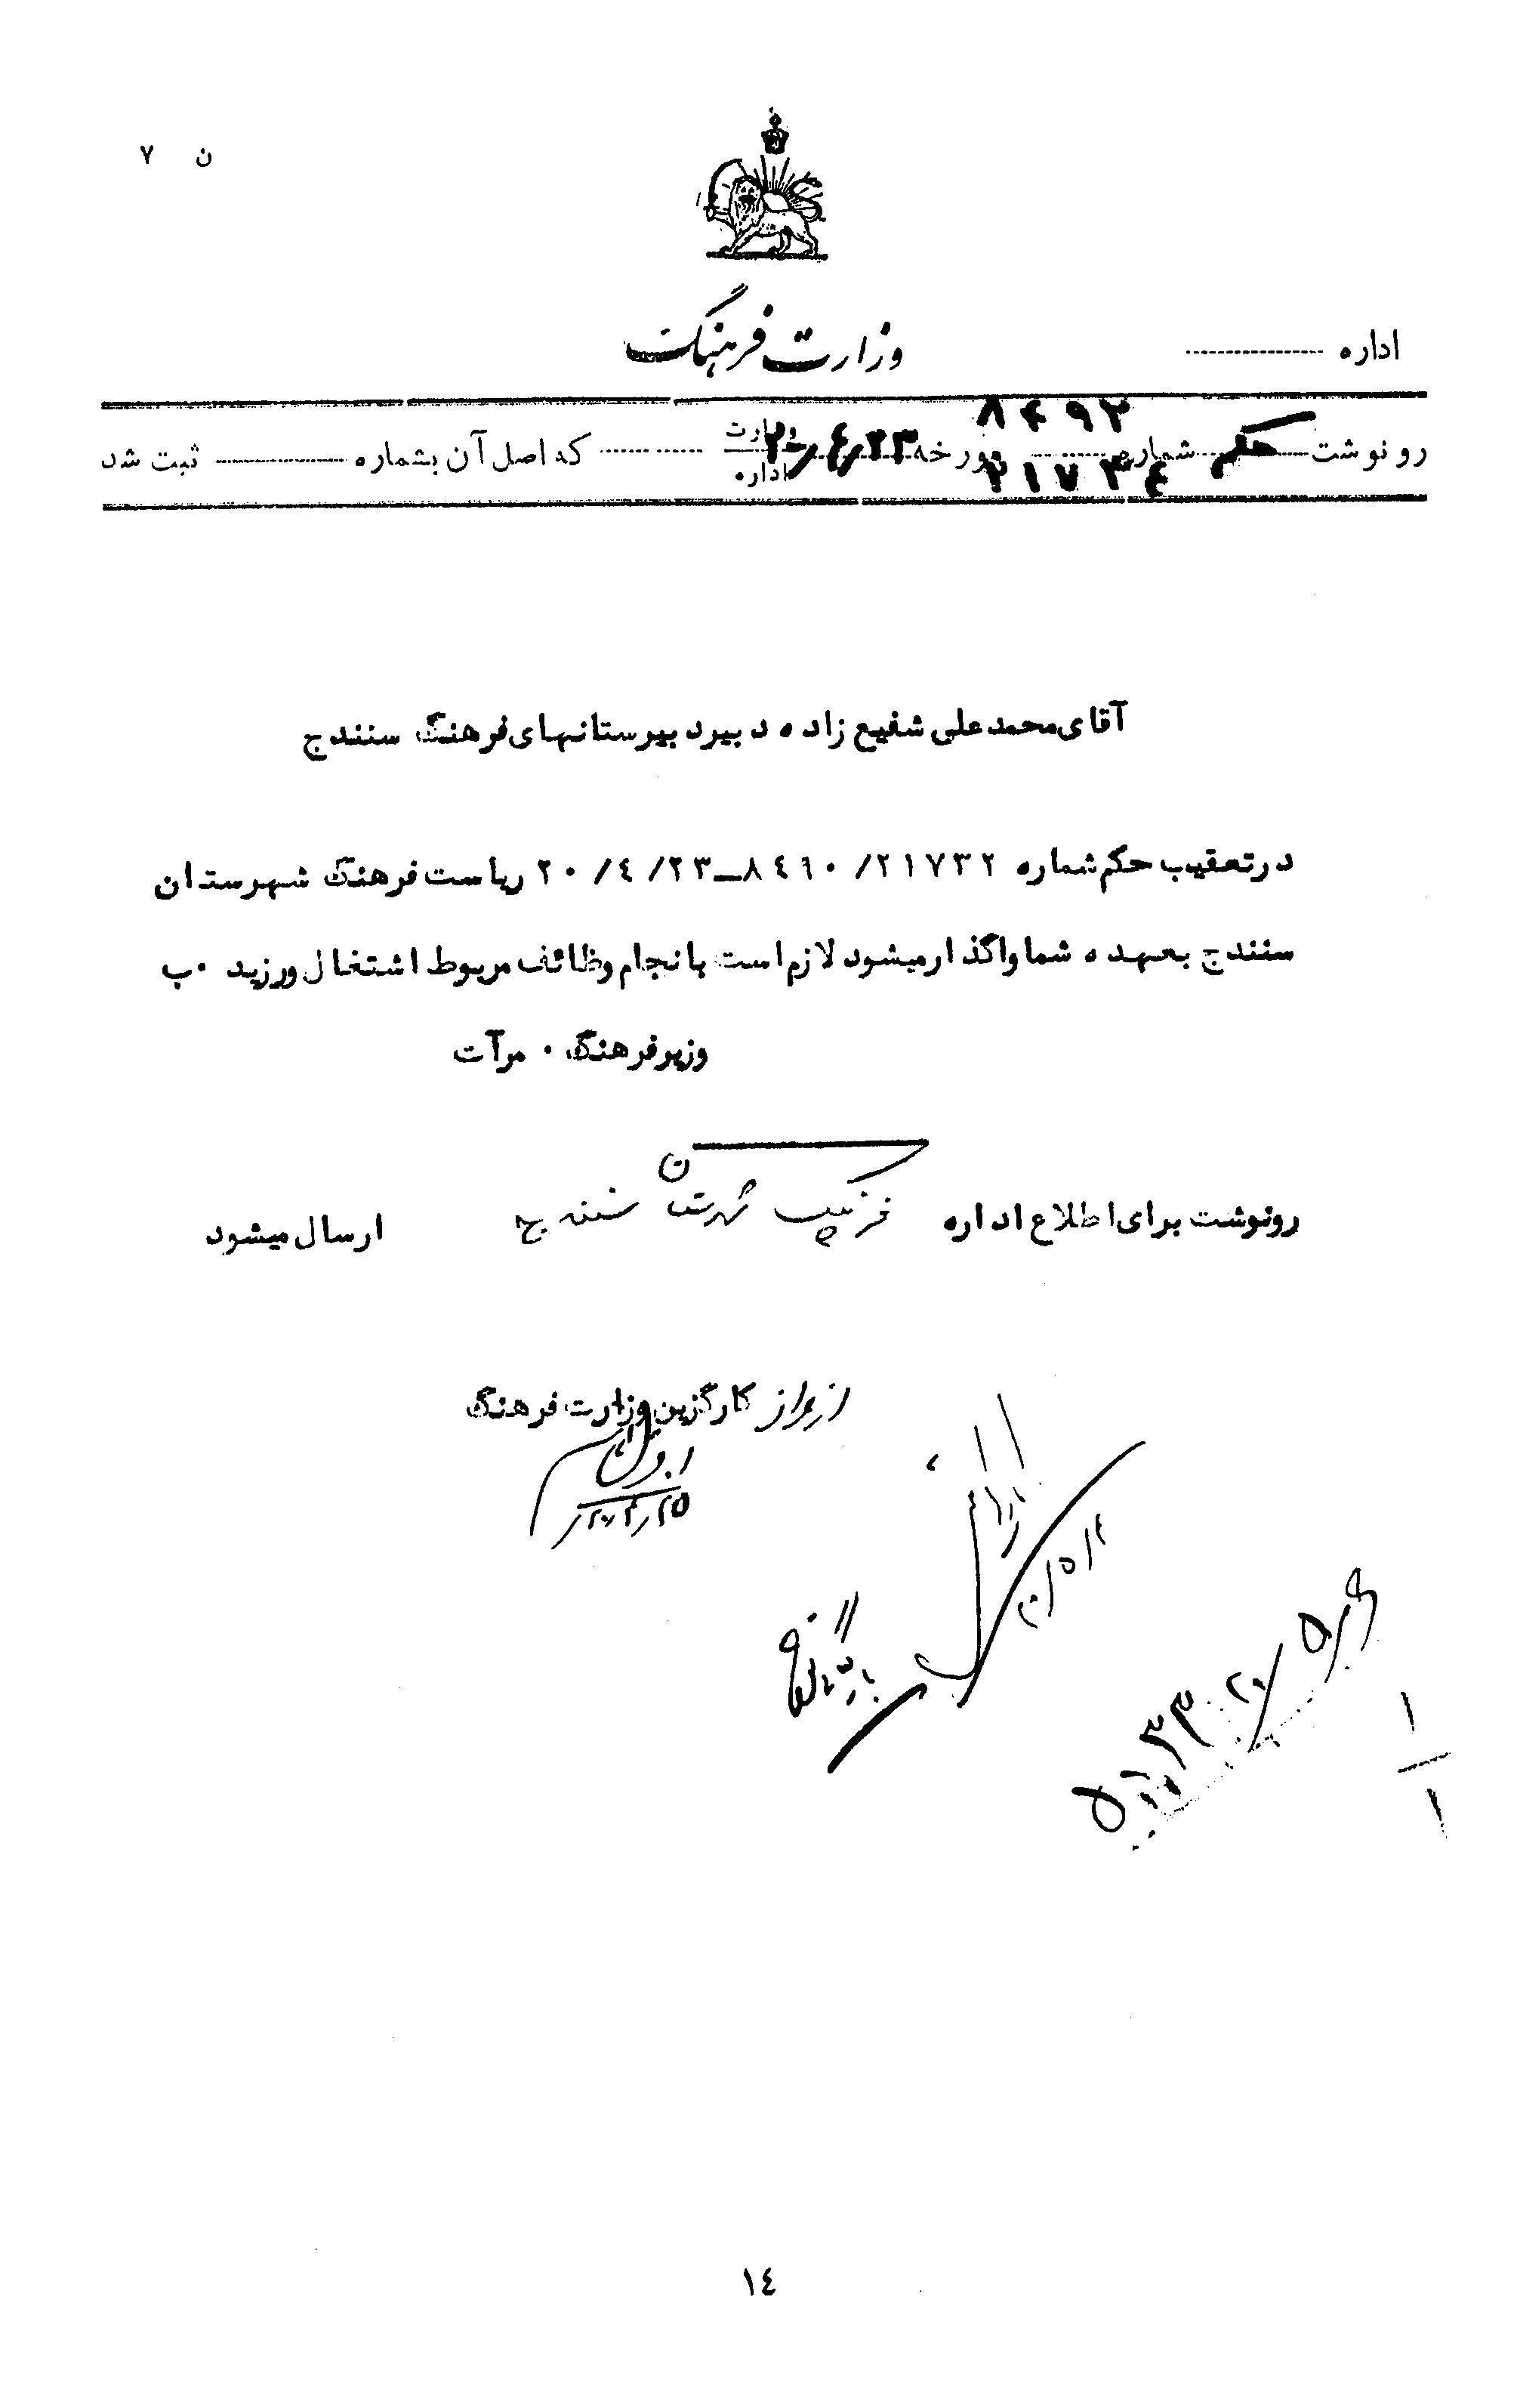 ن ۷
وزارت فرهنگ
اداره
۸۴۹۲
رونوشت حکم شماره مورخه ۲۰/٤/۲۳ وزارت اداره که اصل آن بشماره ثبت شد
۲۱۷۳٤
آقای محمد علی شفیع زاده دبیر دبیرستانهای فرهنگ سنندج
در تعقیب حکم شماره ۲۱۷۳۲/ ۸٤٦۰ـ۲۰/٤/۲۳ ریاست فرهنگ شهرستان
سنندج بعهده شما واگذار میشود لازم است بانجام وظائف مربوط اشتغال ورزید ۰ب
وزیر فرهنگ ۰ مرآت
رونوشت برای اطلاع اداره فرهنگ شهرستان سنندج ارسال میشود
از طرف کارگزین وزارت فرهنگ
۲۰/٤/۲۵
بایگانی
۱
۱
۱٤